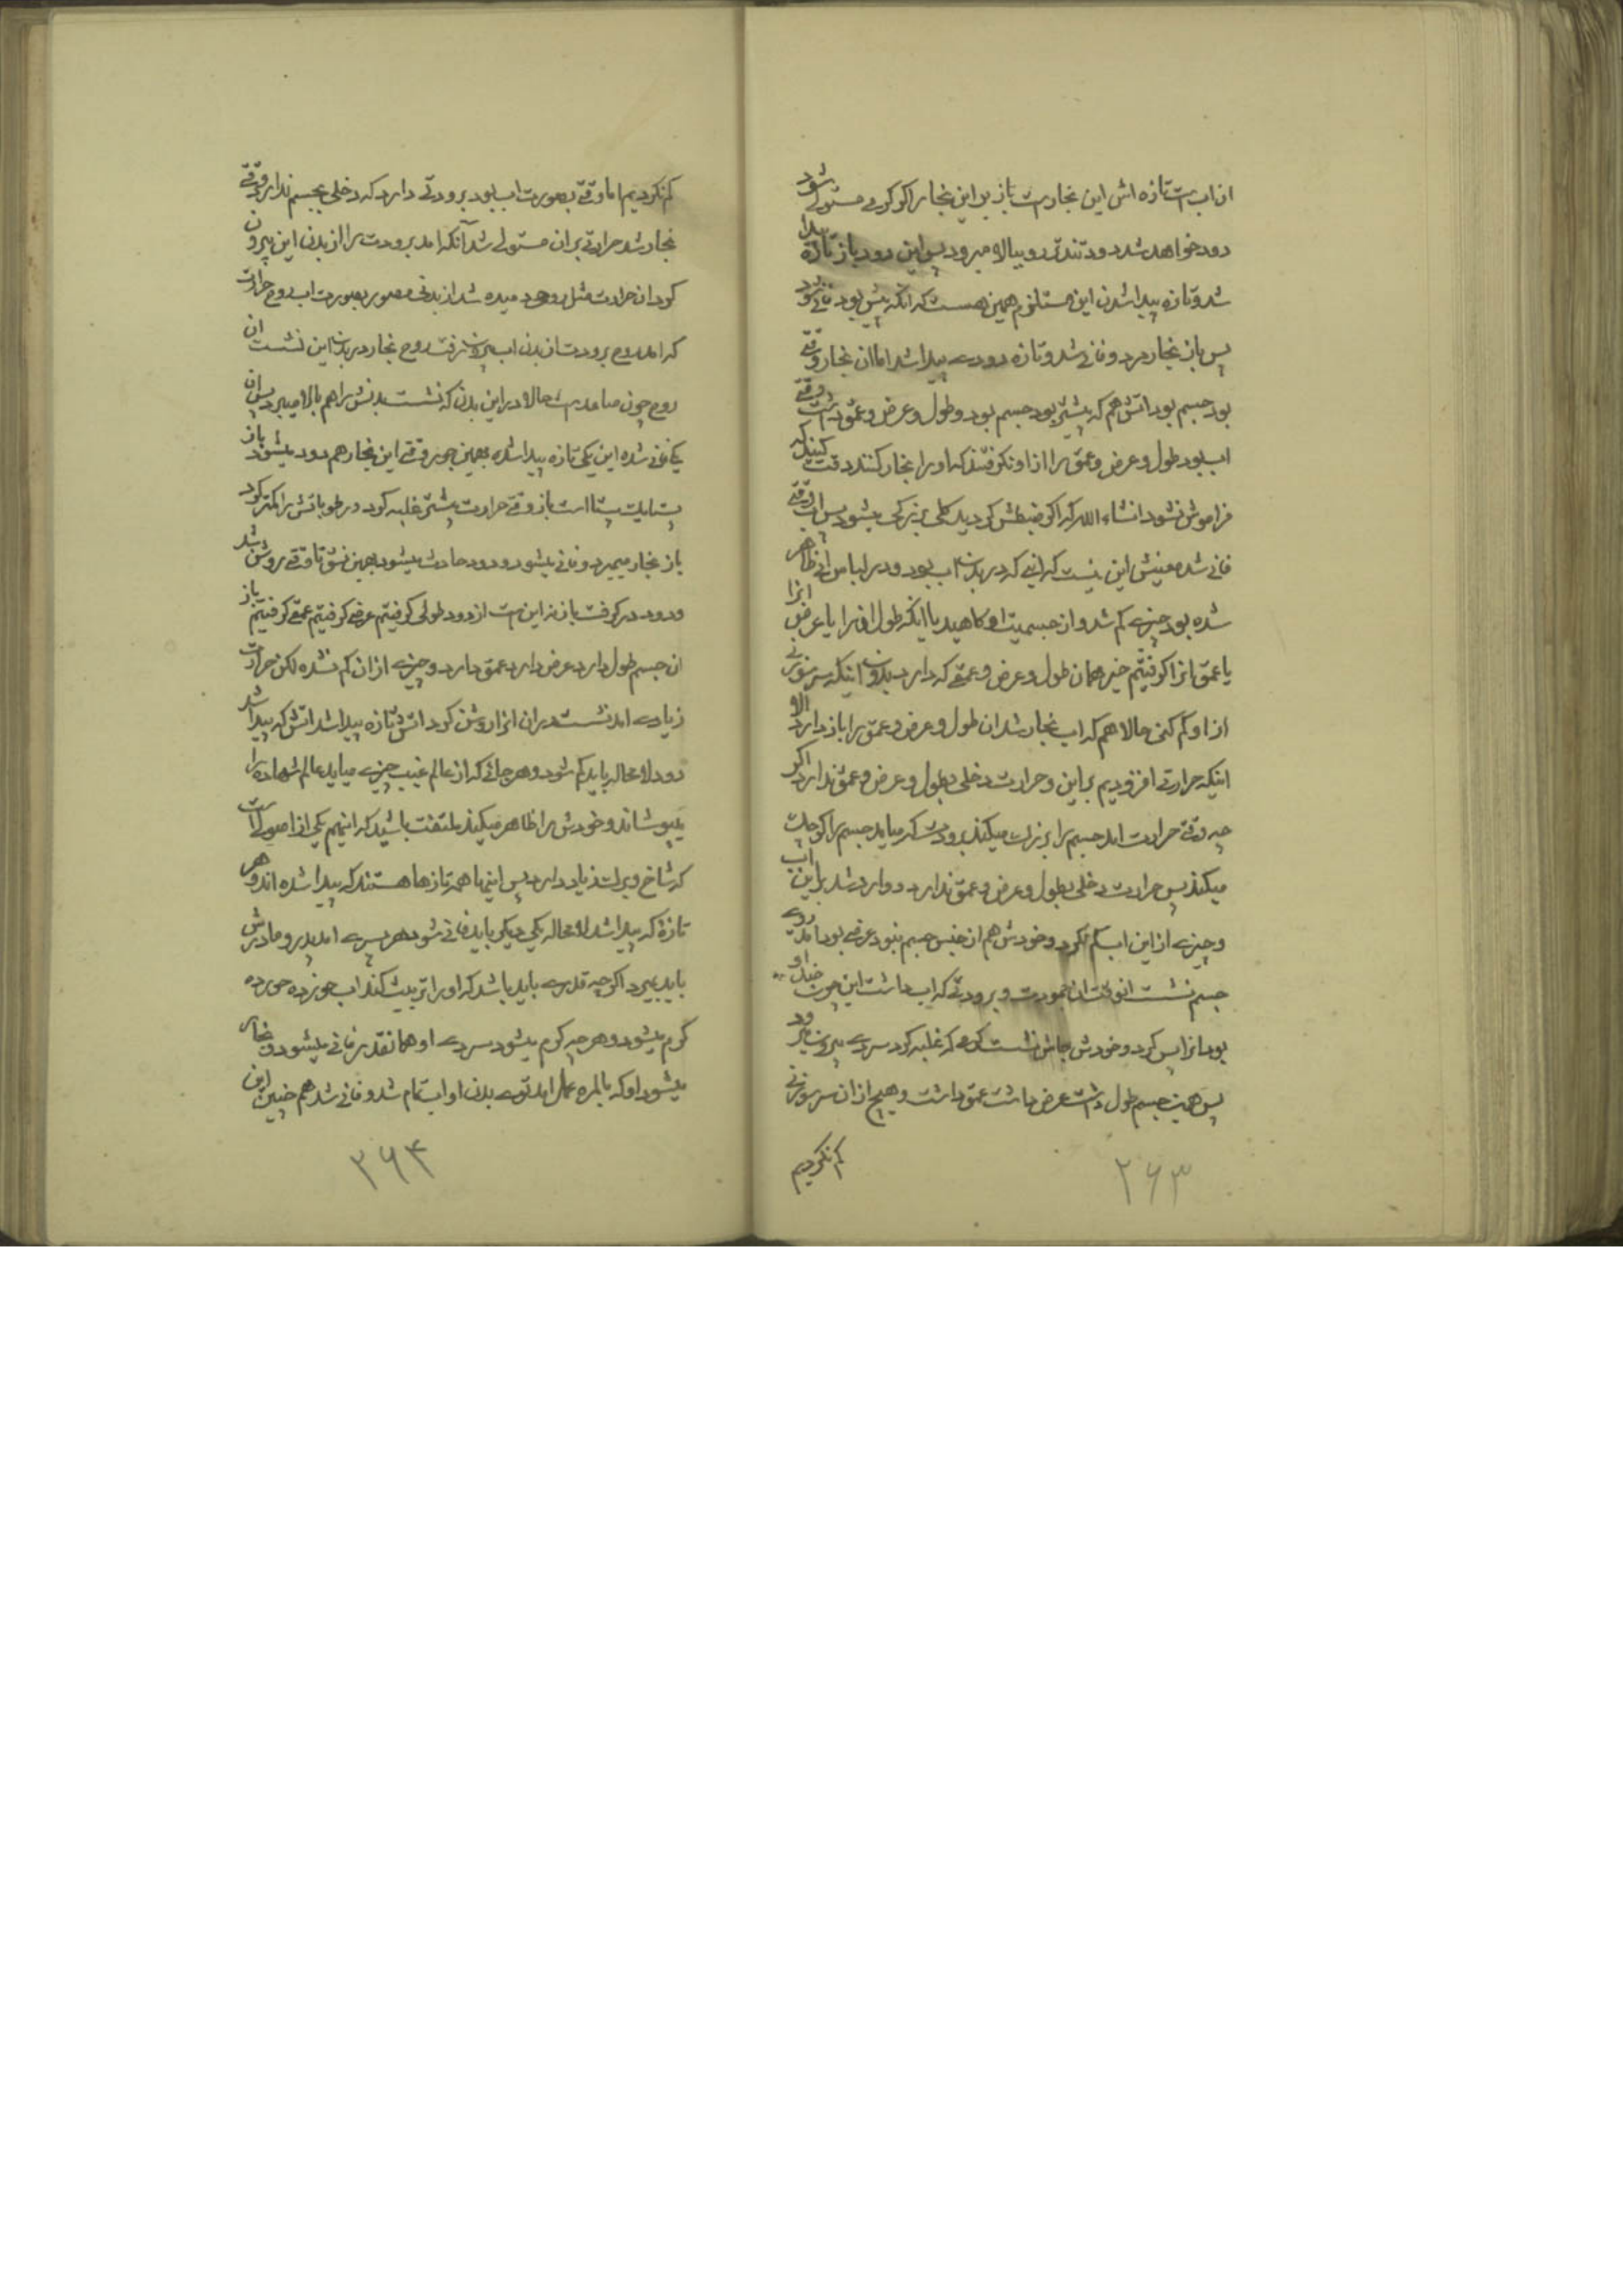 از آب است تازه اش این بخار است باز بر این بخار اگر گرمی مستولی شود
دود خواهد شد دود تندتر رو ببالا میرود پس این دود باز تازه پیدا
شد و تازه پیدا شدن این مستلزم همین هست که انکه پیش بود فانی شود
پس باز بخار مرد و فانی شد و تازه دودی پیدا شد اما ان بخار وقتی
بود جسم بود اتش هم که پیشتر بود جسم بود و طول و عرض و عمق داشت وقتی
اب بود طول و عرض و عمق را از او نکرفتند که او را بخار کنند دقت کنید که
فراموش نشود انشاء الله که اکر ضبطش کردید کلی بزرکی میشود پس اب وقتی
فانی شد معنیش این نیست که ابی که در بدن اب بود و در لباس ابی ظاهر
شده بود چیزی کم شد و از جسمیت او کاهید یا اینکه طول او را یا عرض انرا
یا عمق انرا کرفتیم خیر همان طول و عرض و عمقی که دارد بدون اینکه سر سوزنی
از او کم کنی حالا هم که اب بخار شد ان طول و عرض و عمق را باز دارد الا
اینکه حرارتی افزودیم بر این و حرارت دخلی بطول و عرض و عمق ندارد اکر
چه وقتی حرارت امد جسم را بزرک میکند برودت که میاید جسم را کوچک
میکند پس حرارت دخلی بطول و عرض و عمق ندارد و وارد شد بر این اب
و چیزی از این اب کم نکرد و خودش هم از جنس جسم نبود عرضی بود امد روی
جسم نشست انوقت ان جمودت و برودتی که اب داشت این چون ضد او
بود انرا پس کرد و خودش جاش نشست کرمی که غلبه کرد سردی بیرون میرود
پس همین جسم طول داشت عرض داشت عمق داشت و هیچ از ان سر سوزنی
کم نکردیم
۲۶۳
کم نکردیم اما وقتی بصورت اب بود برودتی دارد که دخلی بجسم ندارد وقتی
بخار شد حرارتی بران مستولی شد آنکه امد برودت را از بدن این بیرون
کرد ان حرارت مثل روحی دمیده شد از بدنی مصور بصورت اب روح حرارت
که امد روح برودت از بدن اب بیرون رفت روح بخار در بدن این نشست ان
روح چون صاعد است حالا در این بدن که نشست بدنش را هم بالا میبرد پس ان
یکی فانی شده این یکی تازه پیدا شده بهمین جور وقتی این بخار هم دود میشود باز
باز وقتی حرارت بیشتر غلبه کرد و رطوباتش را کمتر کرد
باز بخار میمیرد و فانی میشود و دود حادث میشود بهمین نسق تا وقتی روشن شد
و دود در کرفت باز نه این است از دود طولی کرفتیم عرضی کرفتیم عمقی کرفتیم باز
ان جسم طول دارد عرض دارد عمق دارد و چیزی از ان کم نشده لکن حرارت
زیادی امد نشست در ان انرا روشن کرد اتش تازه پیدا شد اتش که پیدا شد
دود لامحاله باید کم شود و هر جائی که از عالم غیب چیزی میاید عالم شهاده را
میپوشاند و خودش را ظاهر میکند ملتفت باشید که اینهم یکی از اصولی است
که شاخ و برک زیاد دارد پس اینها همه تازها هستند که پیدا شده اند و هر
تازه که پیدا شد لامحاله یکی دیکر باید فانی شود هر پسری امد پدر و مادرش
باید بمیرد اکر چه قدری باید باشد که او را تربیت کند اب خورده خورده
کرم میشود و هر چه کرم میشود سردی او همانقدر فانی میشود و بخار
میشود او که بالمره عمل امد توی بدن او اب تمام شد و فانی شد هم چنین این
۲۶۴